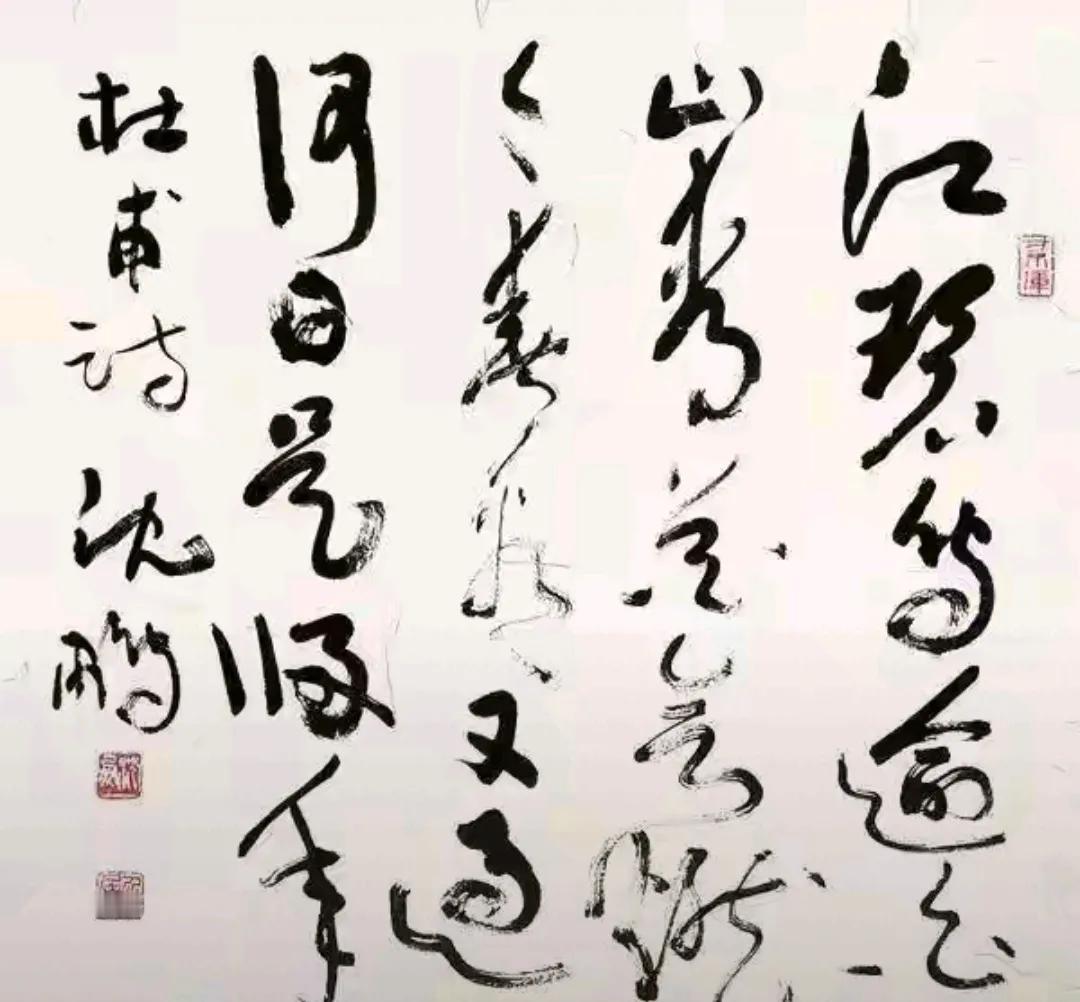 江碧鳥逾白
山青花欲燃
今春看又過
何日是歸年
杜甫詩 沈鵬